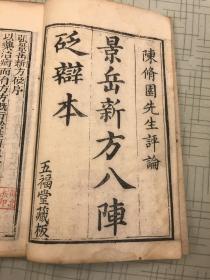 陳脩園先生評論
景岳新方八陣
砭辯本
五福堂藏板